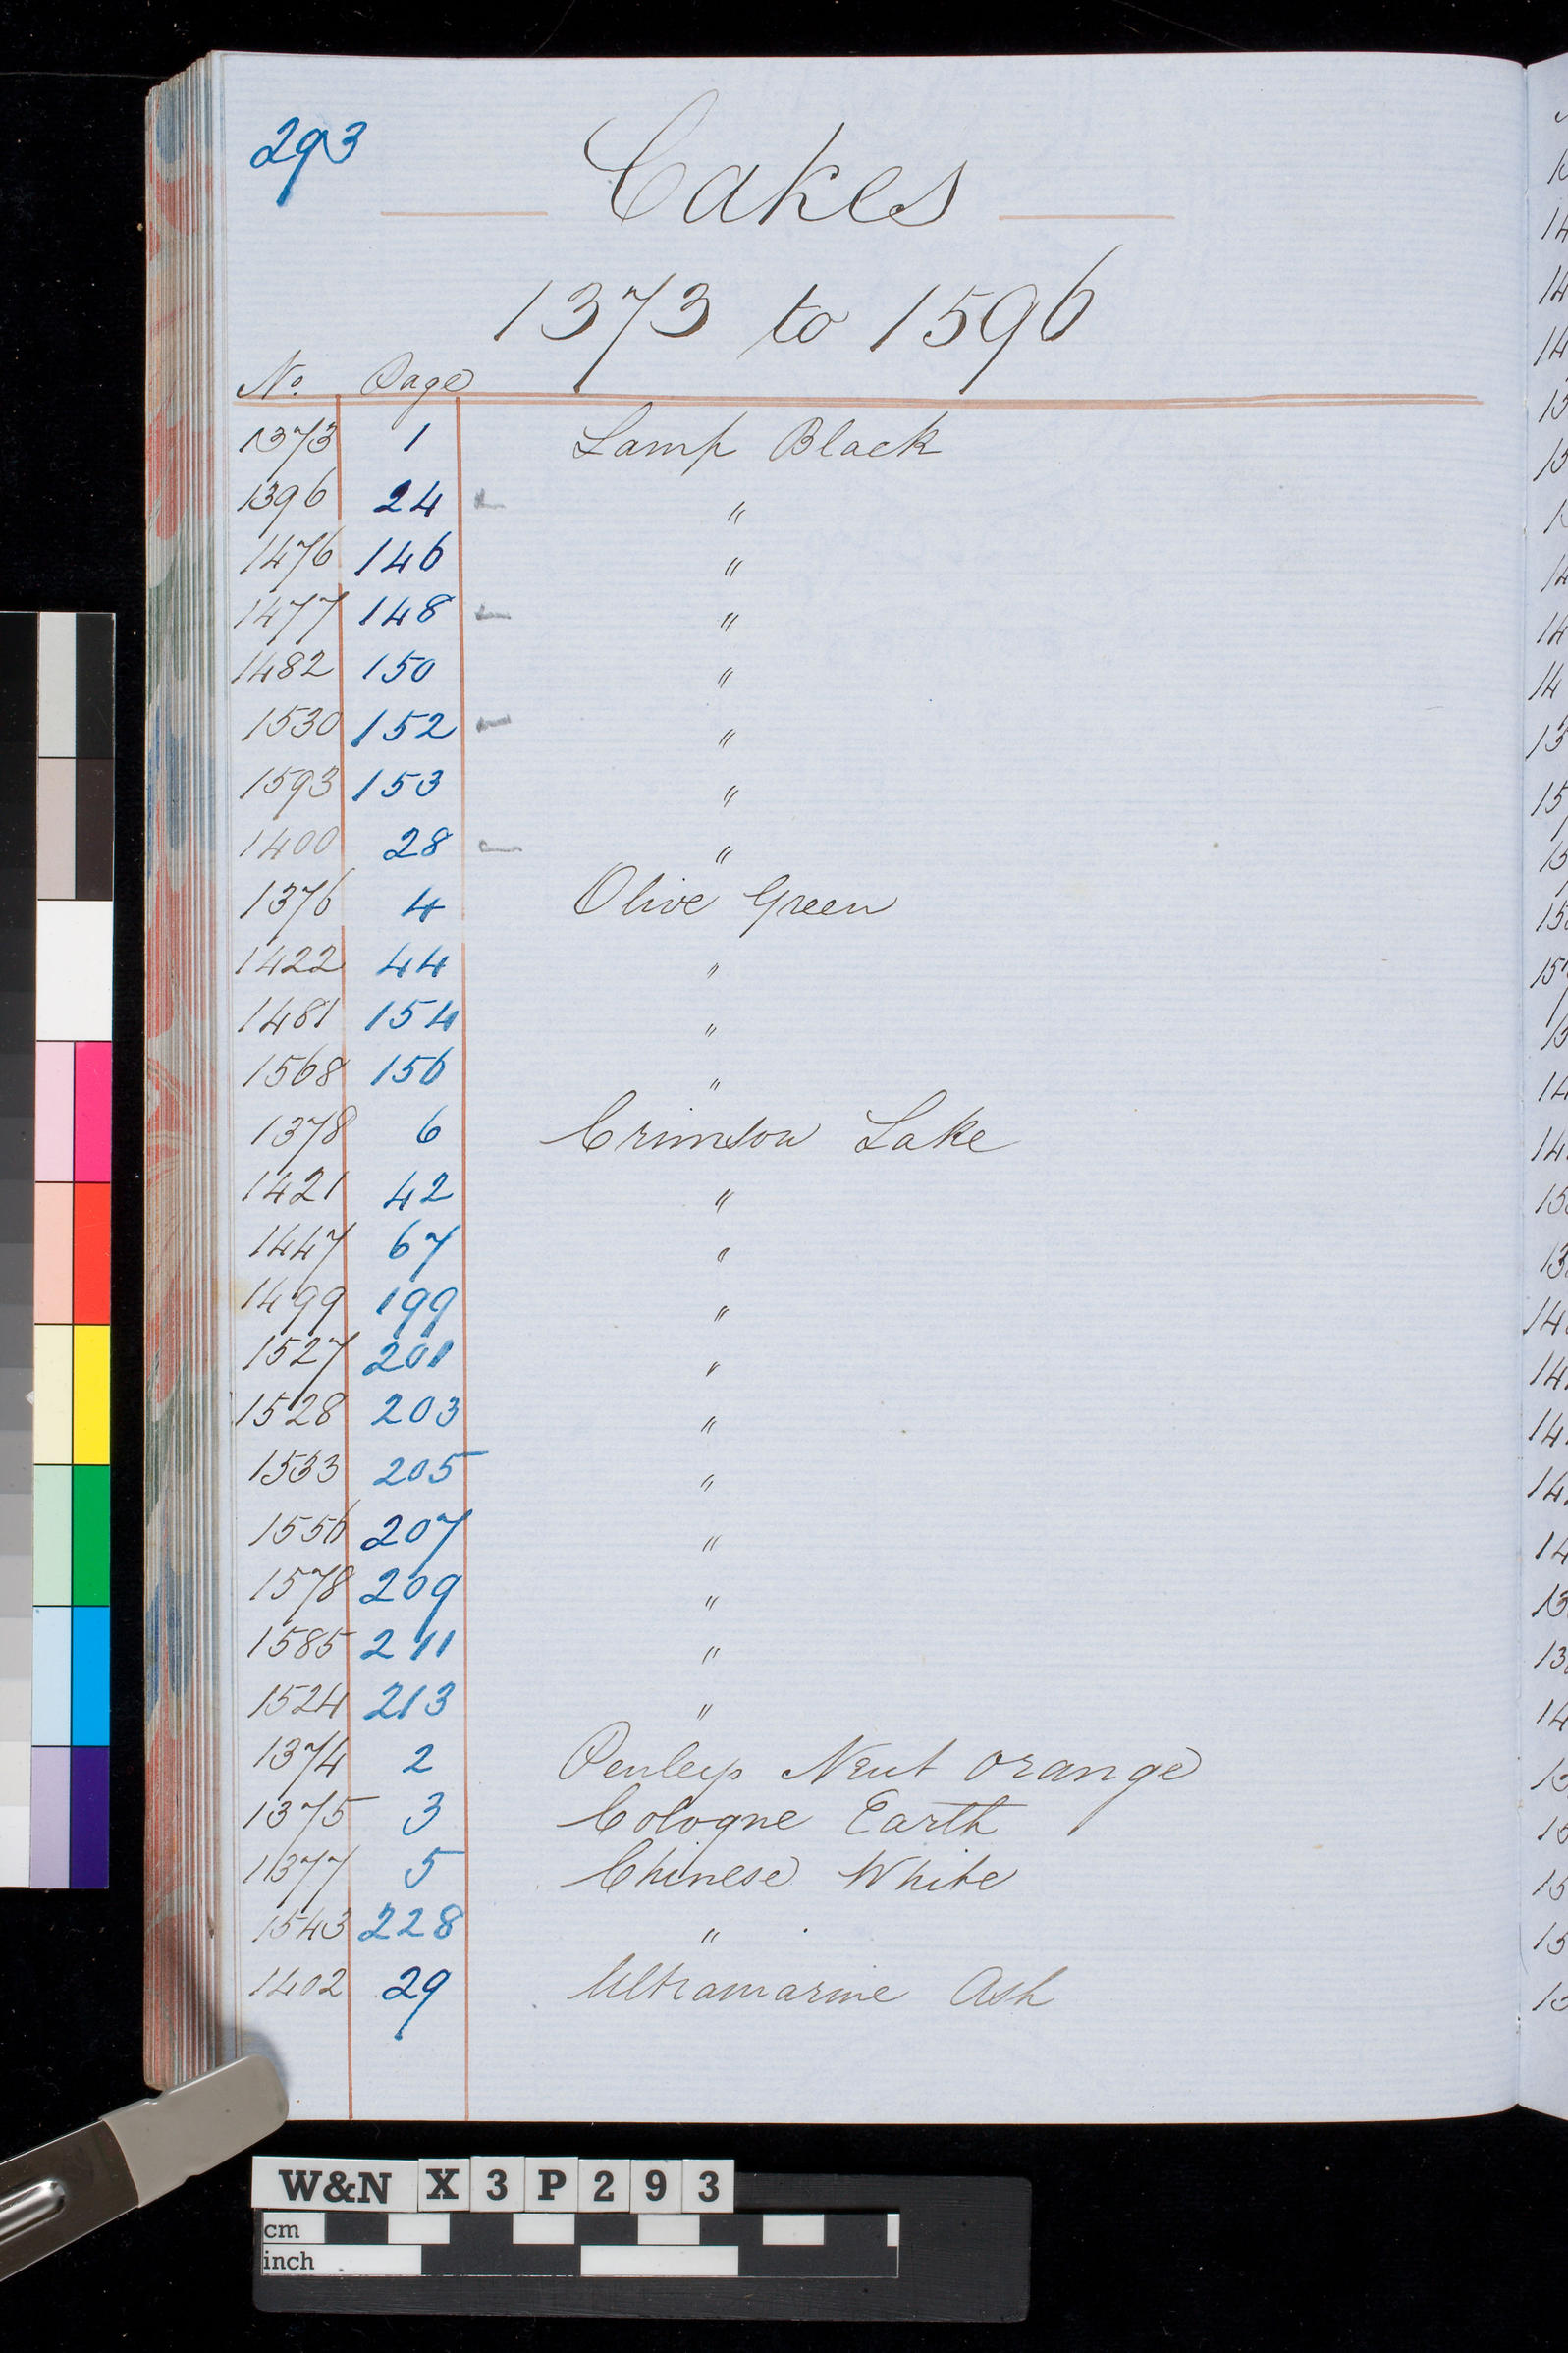 293
Cakes
1373 to 1596
No. Page
1373 1 Lamp Black
1396 24 "
1476 146 "
1477 148 "
1482 150 "
1530 152 "
1593 153 "
1400 28 "
1376 4 Olive Green
1422 44 "
1481 154 "
1568 156 "
1378 6 Crimson Lake
1421 42 "
1447 67 "
1499 199 "
1527 201 "
1528 203 "
1533 205 "
1556 207 "
1578 209 "
1585 211 "
1524 213 "
1374 2 Penleys Neut Orange
1375 3 Cologne Earth
1377 5 Chinese White
1543 228 "
1402 29 Ultramarine Ash
W&N X3P293
cm
inch